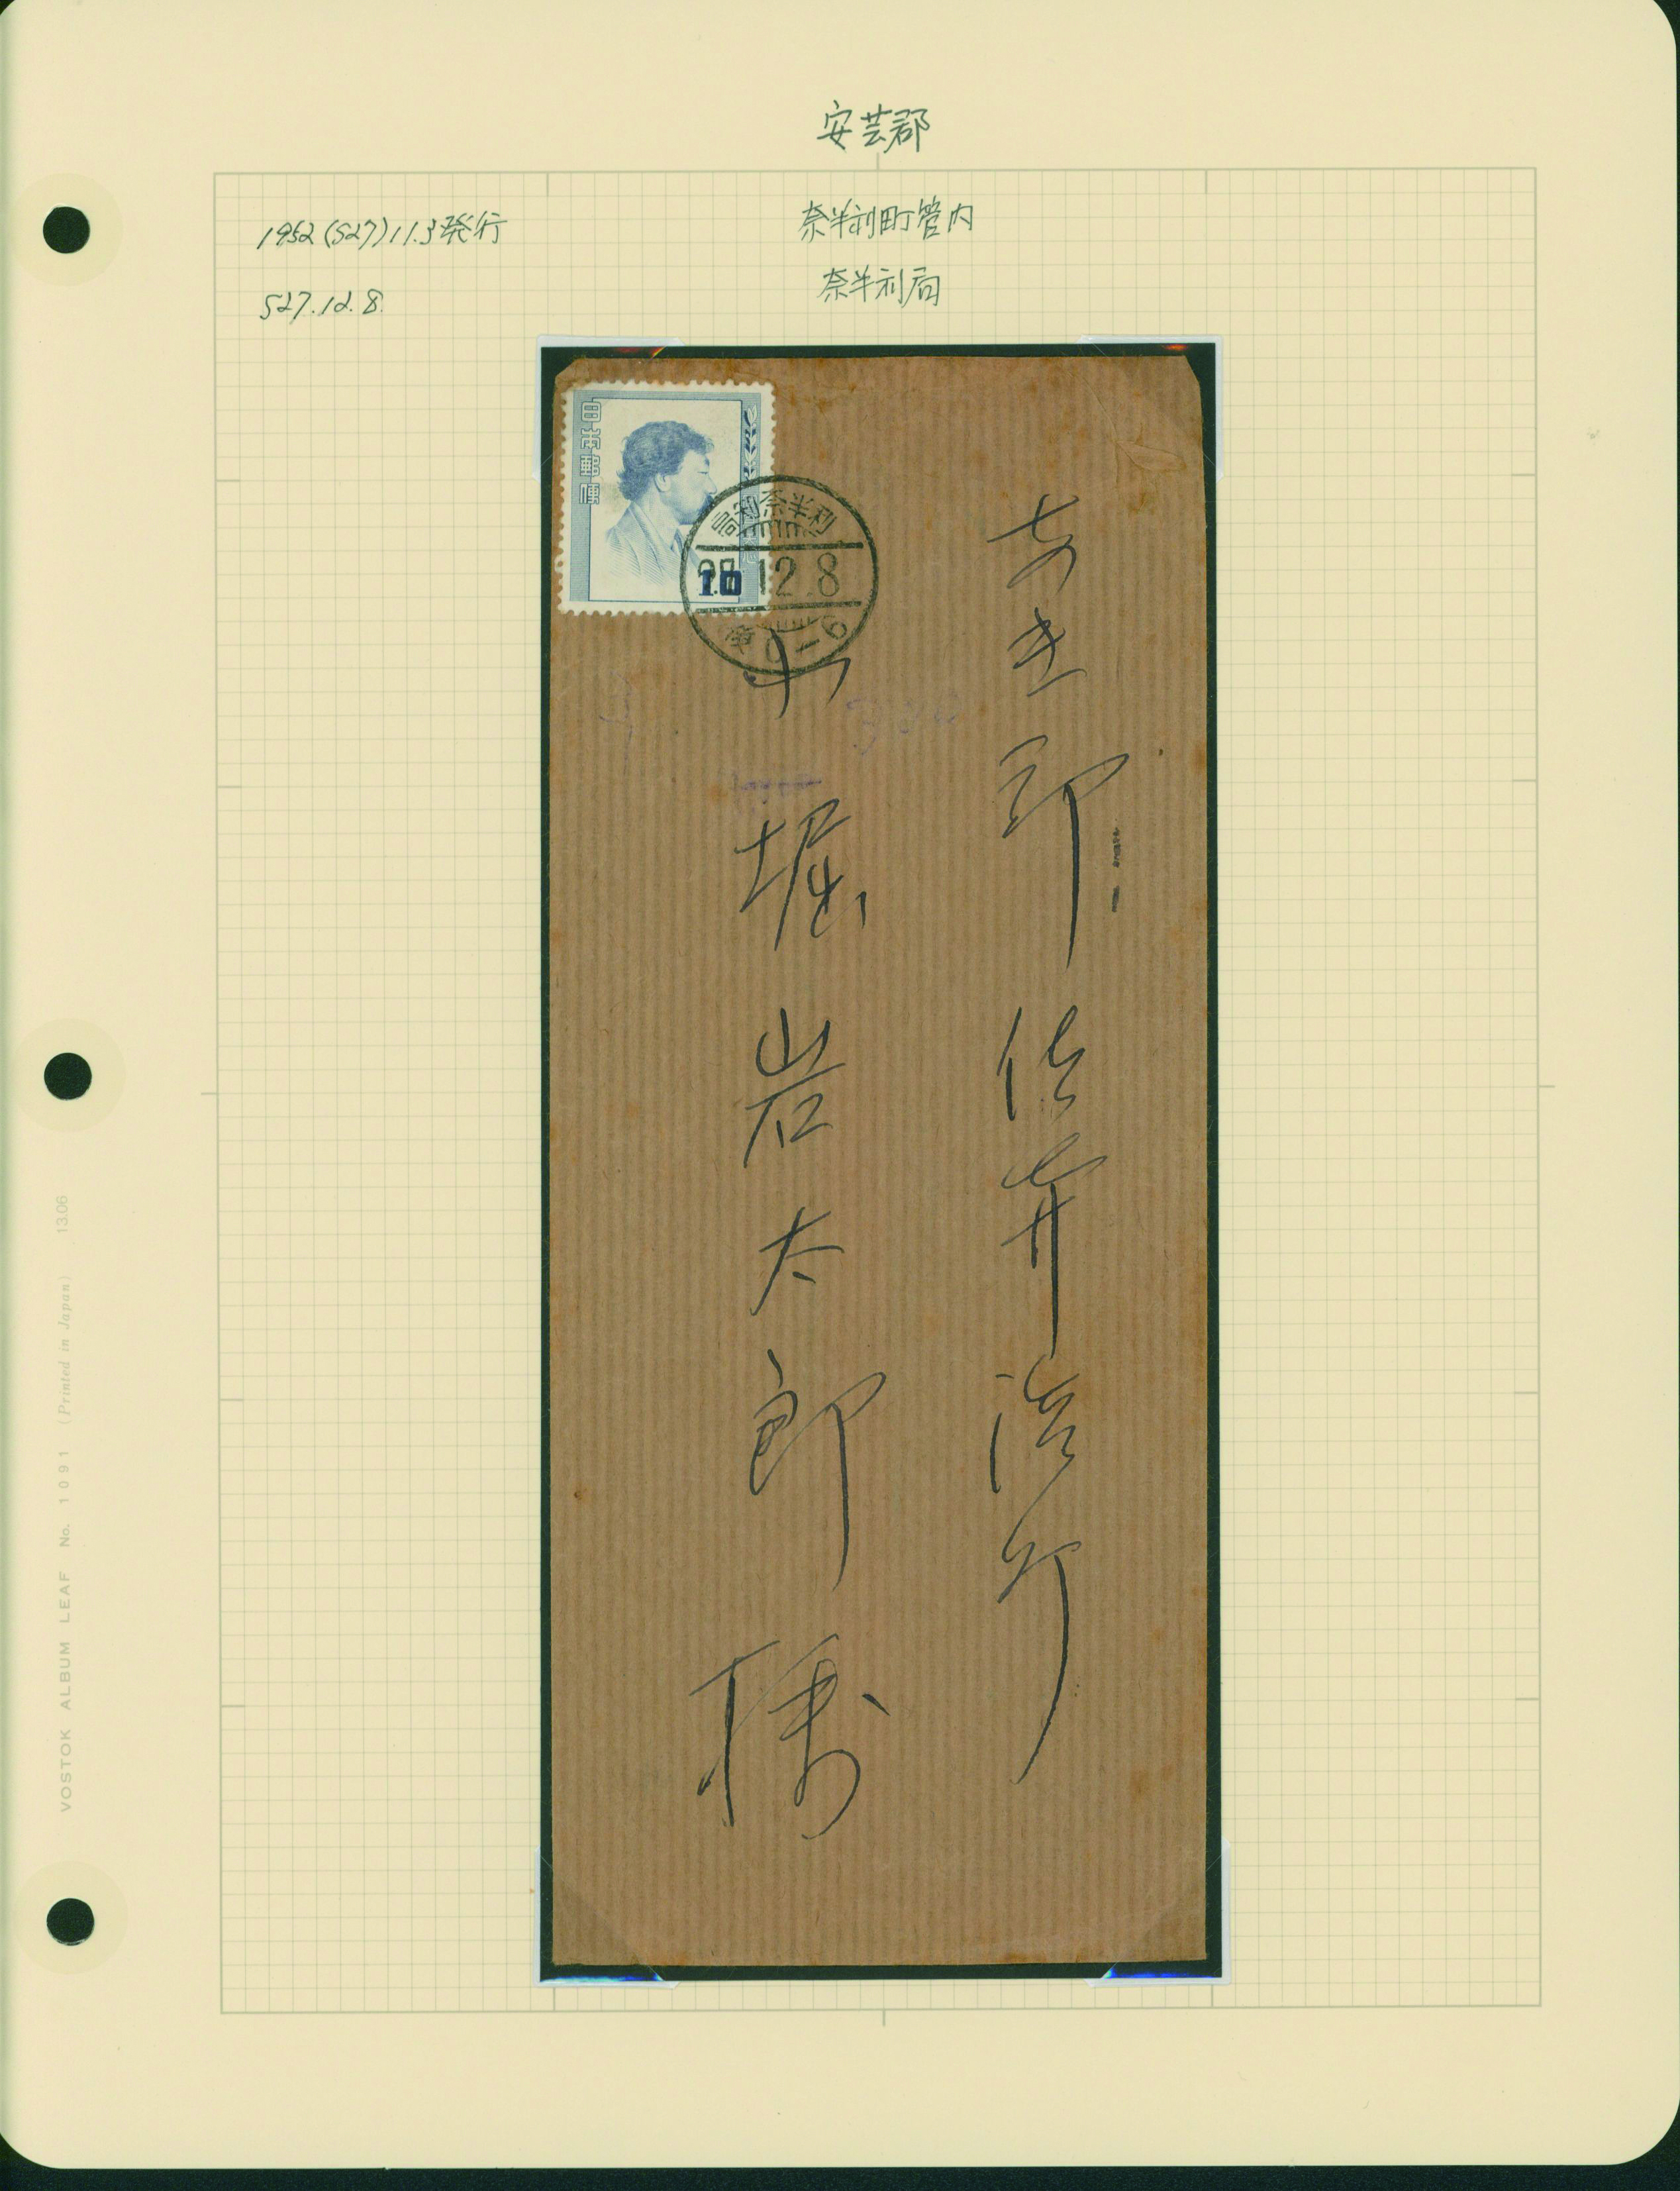 安芸郡
奈半利町管内
奈半利局
1952(S27)11.3発行
S27.12.8.
日本郵便
10
高知奈半利
27.12.8
後0-6
あき郡
堀岩太郎様
VOSTOK ALBUM LEAF No. 1091 (Printed in Japan) 13.06